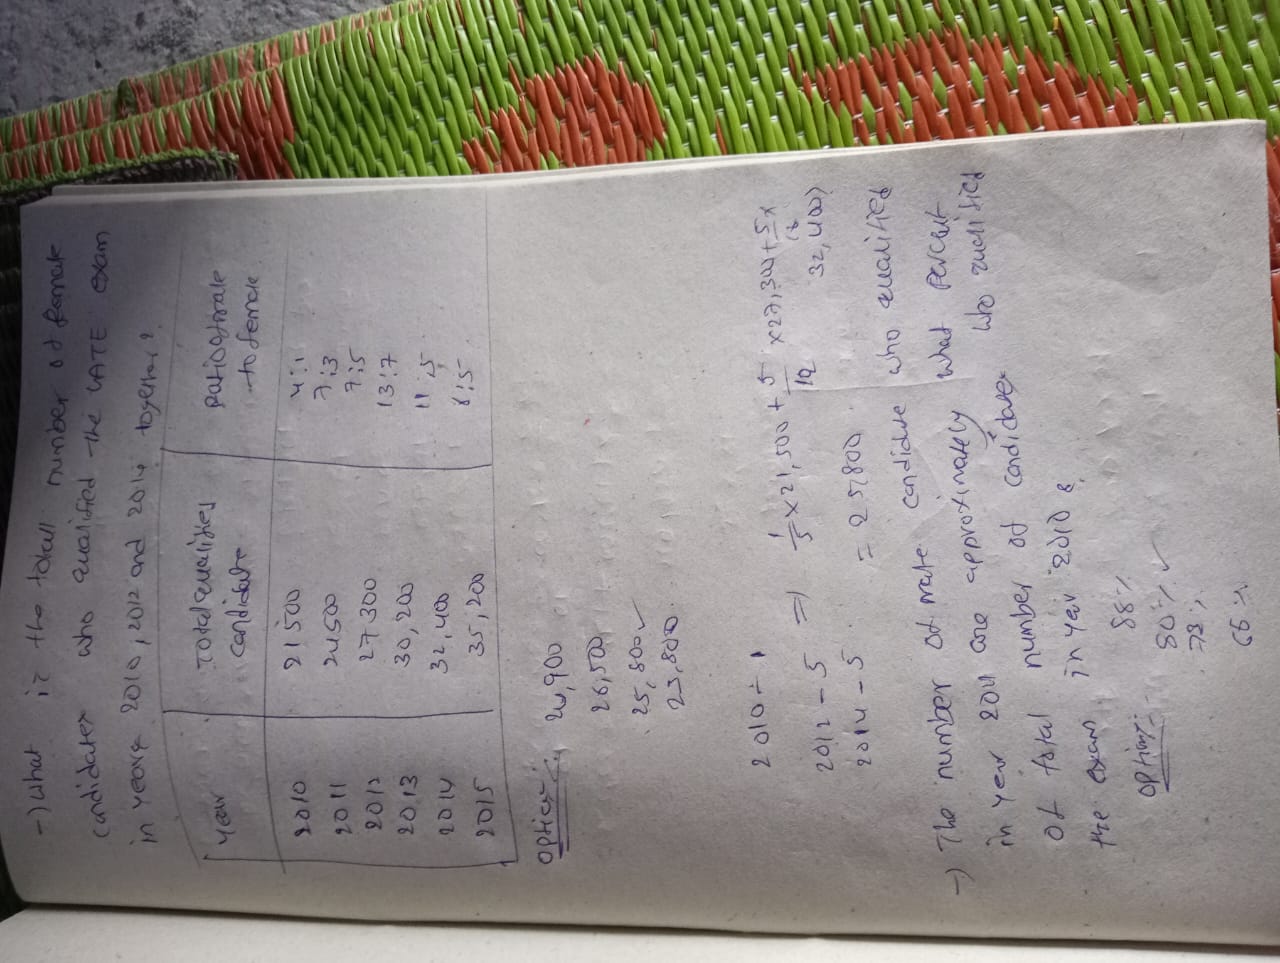 -) what is the totall number of female
candidates who qualified the GATE exam
in years 2010, 2012 and 2014 together?
year Total qualified candidate Ratio of male to female
2010 21500 4:1
2011 24500 7:3
2012 27300 7:5
2013 30,200 13:7
2014 32,400 11:5
2015 35,200 8:5
option:-
26,500
25,800 ✓
23,800
2010 - 1
2012 - 5 => 1/5 x 21,500 + 5/12 x 27,300 + 5/16 x
2014 - 5 32,400)
= 25800
-) The number of male candidate who qualified
in year 2011 are approximately what percent
of total number of candidates who qualified
the exam in year 2010 ?
option:- 88%
80% ✓
78%
66%